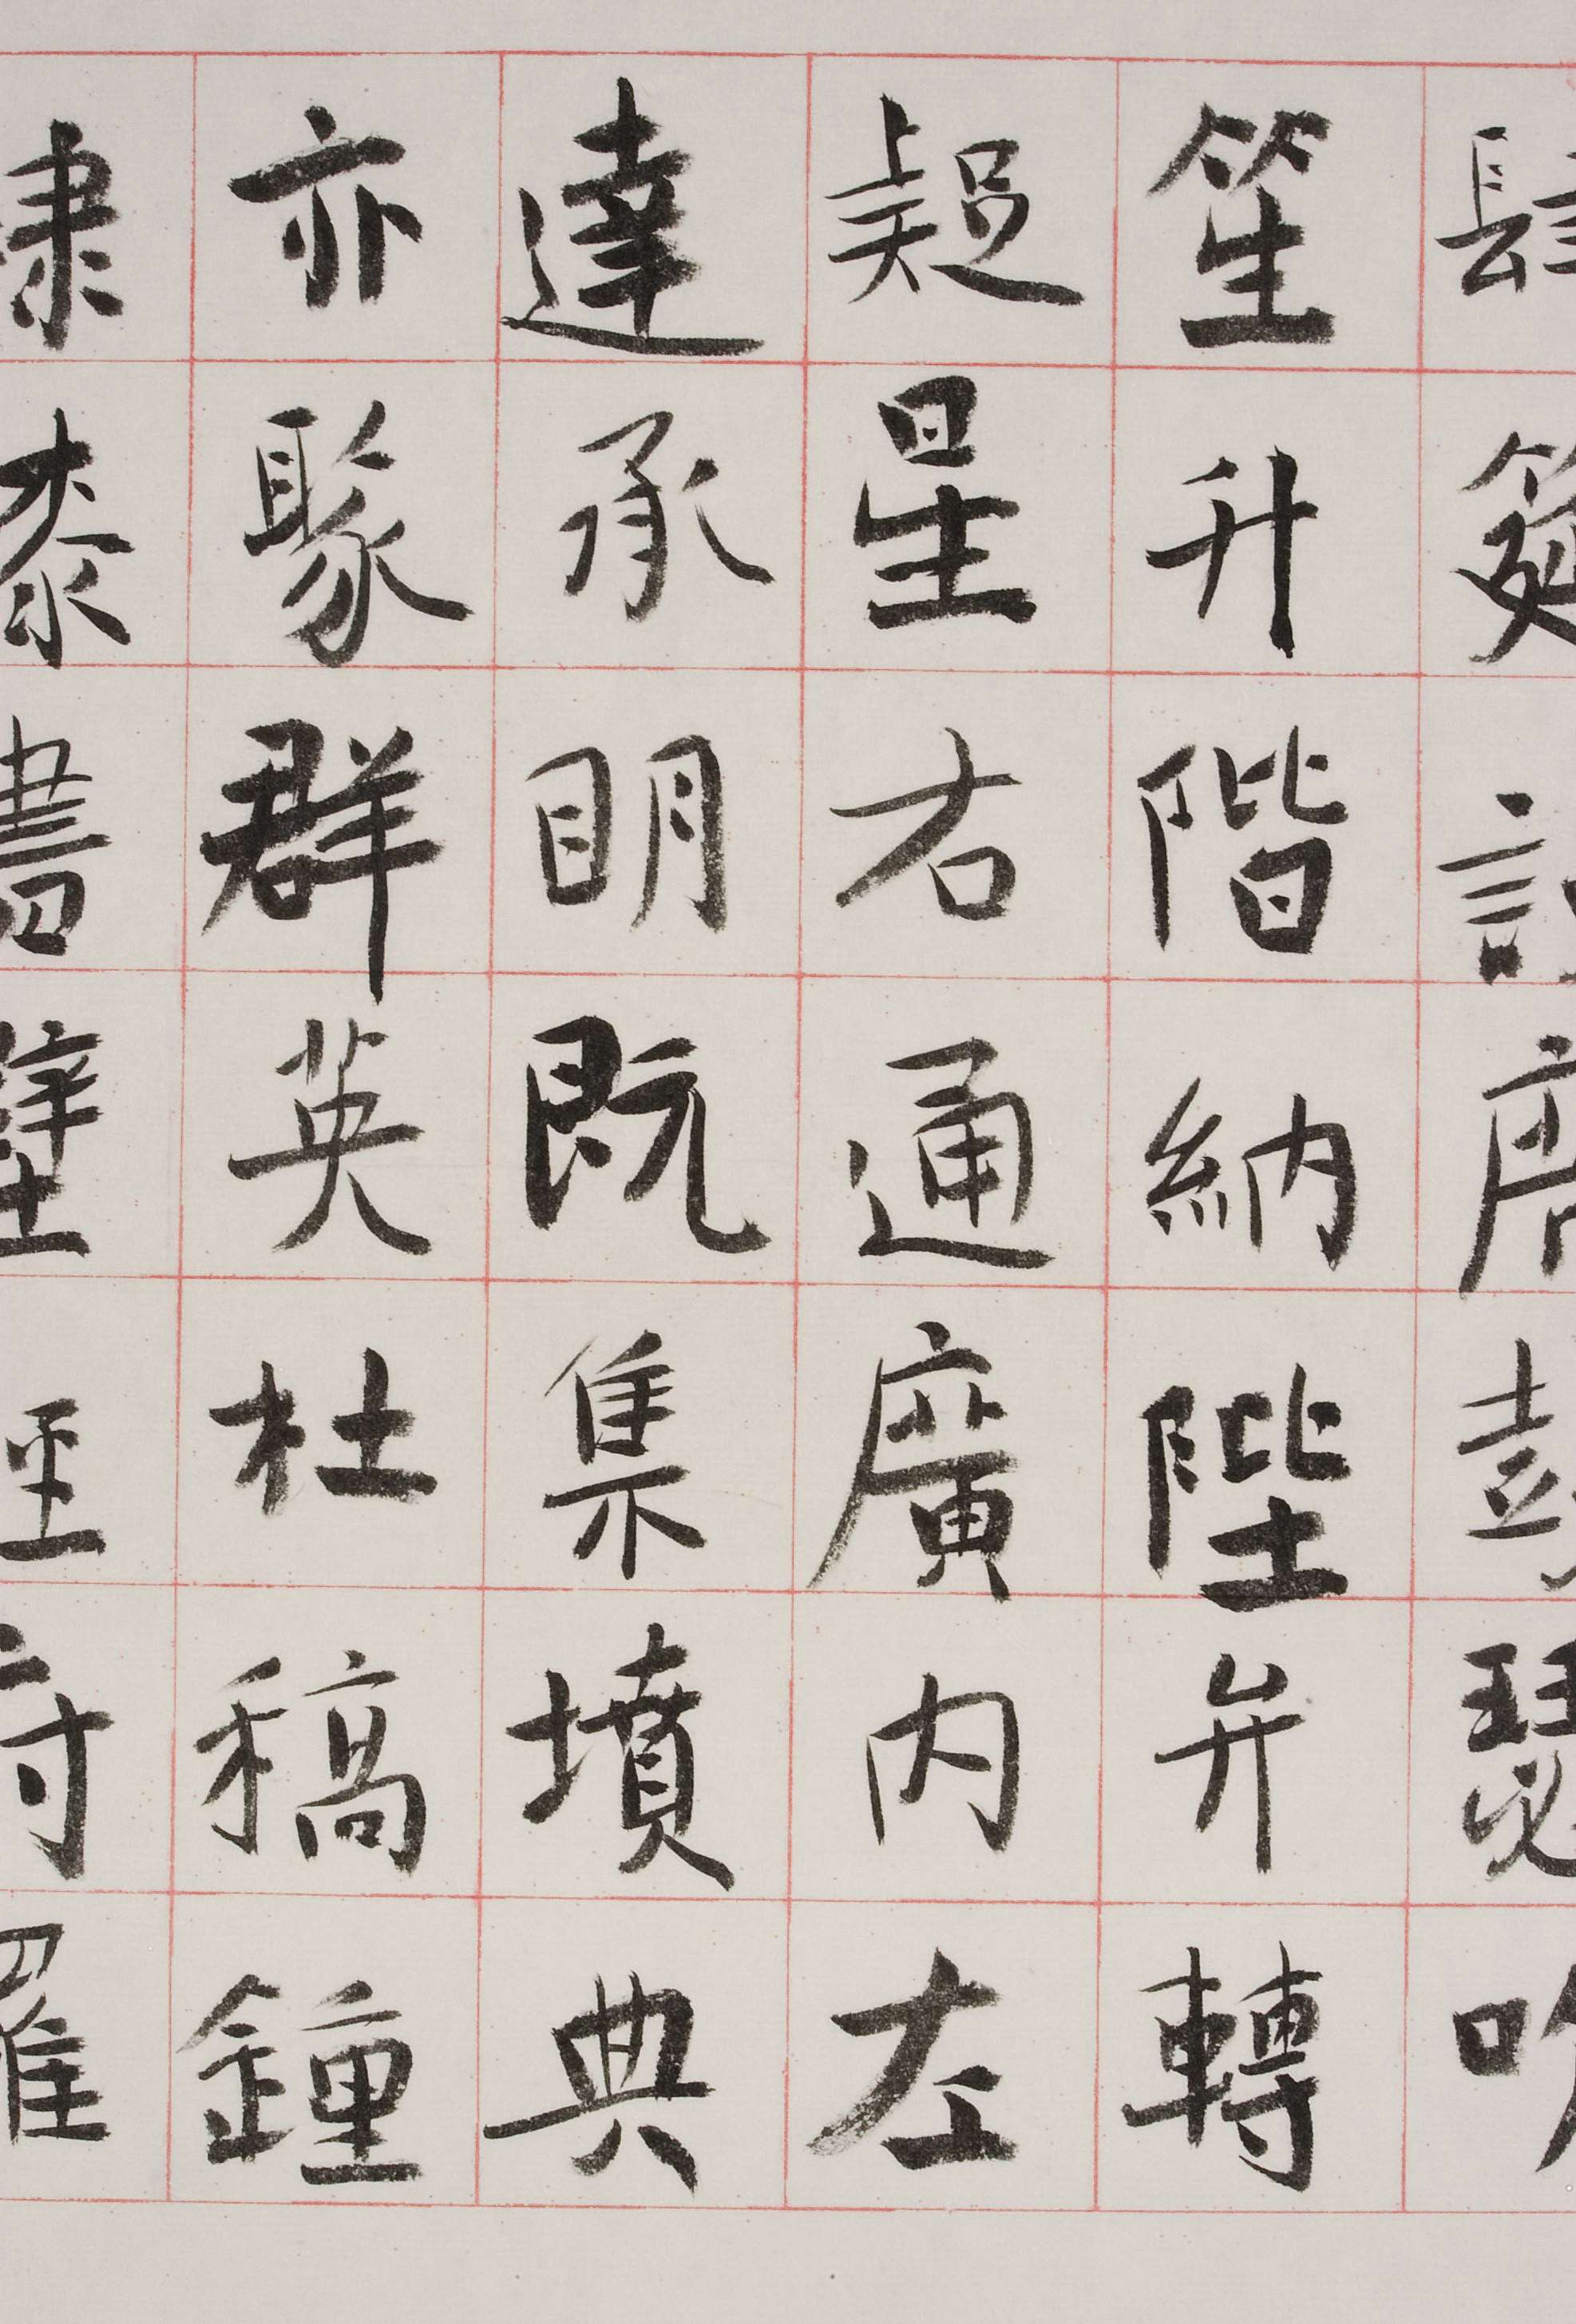 肆筵設席鼓瑟吹
笙升階納陛弁轉
疑星右通廣内左
達承明既集墳典
亦聚群英杜稿鐘
隸漆書壁經府羅